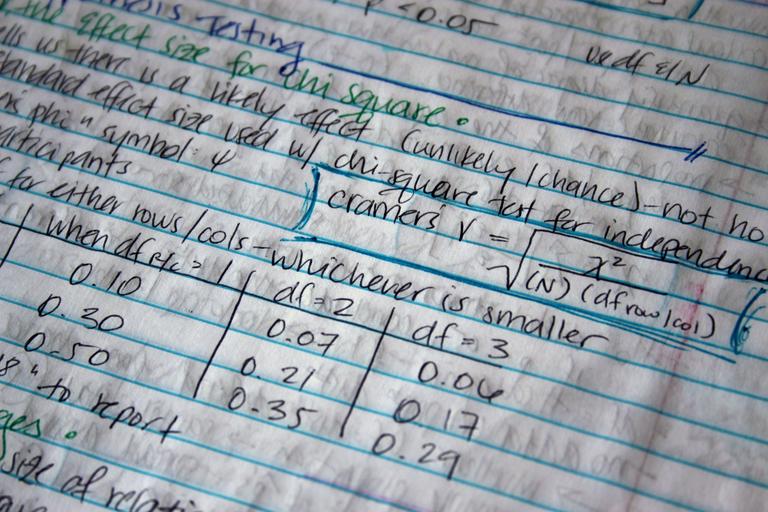 p < 0.05
Testing
use df & N
the effect size for chi square.
ells us there is a likely effect (unlikely / chance) - not ho
tandard effect size used w/ chi-square test for independence
phi " symbol: φ
articipants
cramers V = √ x² / (N) (df row/col)
for either rows/cols - whichever is smaller
when df r/c = 1 df = 2 df = 3
0.10 0.07 0.06
0.30 0.21 0.17
0.50 0.35 0.29
" to report
ges.
size of relati